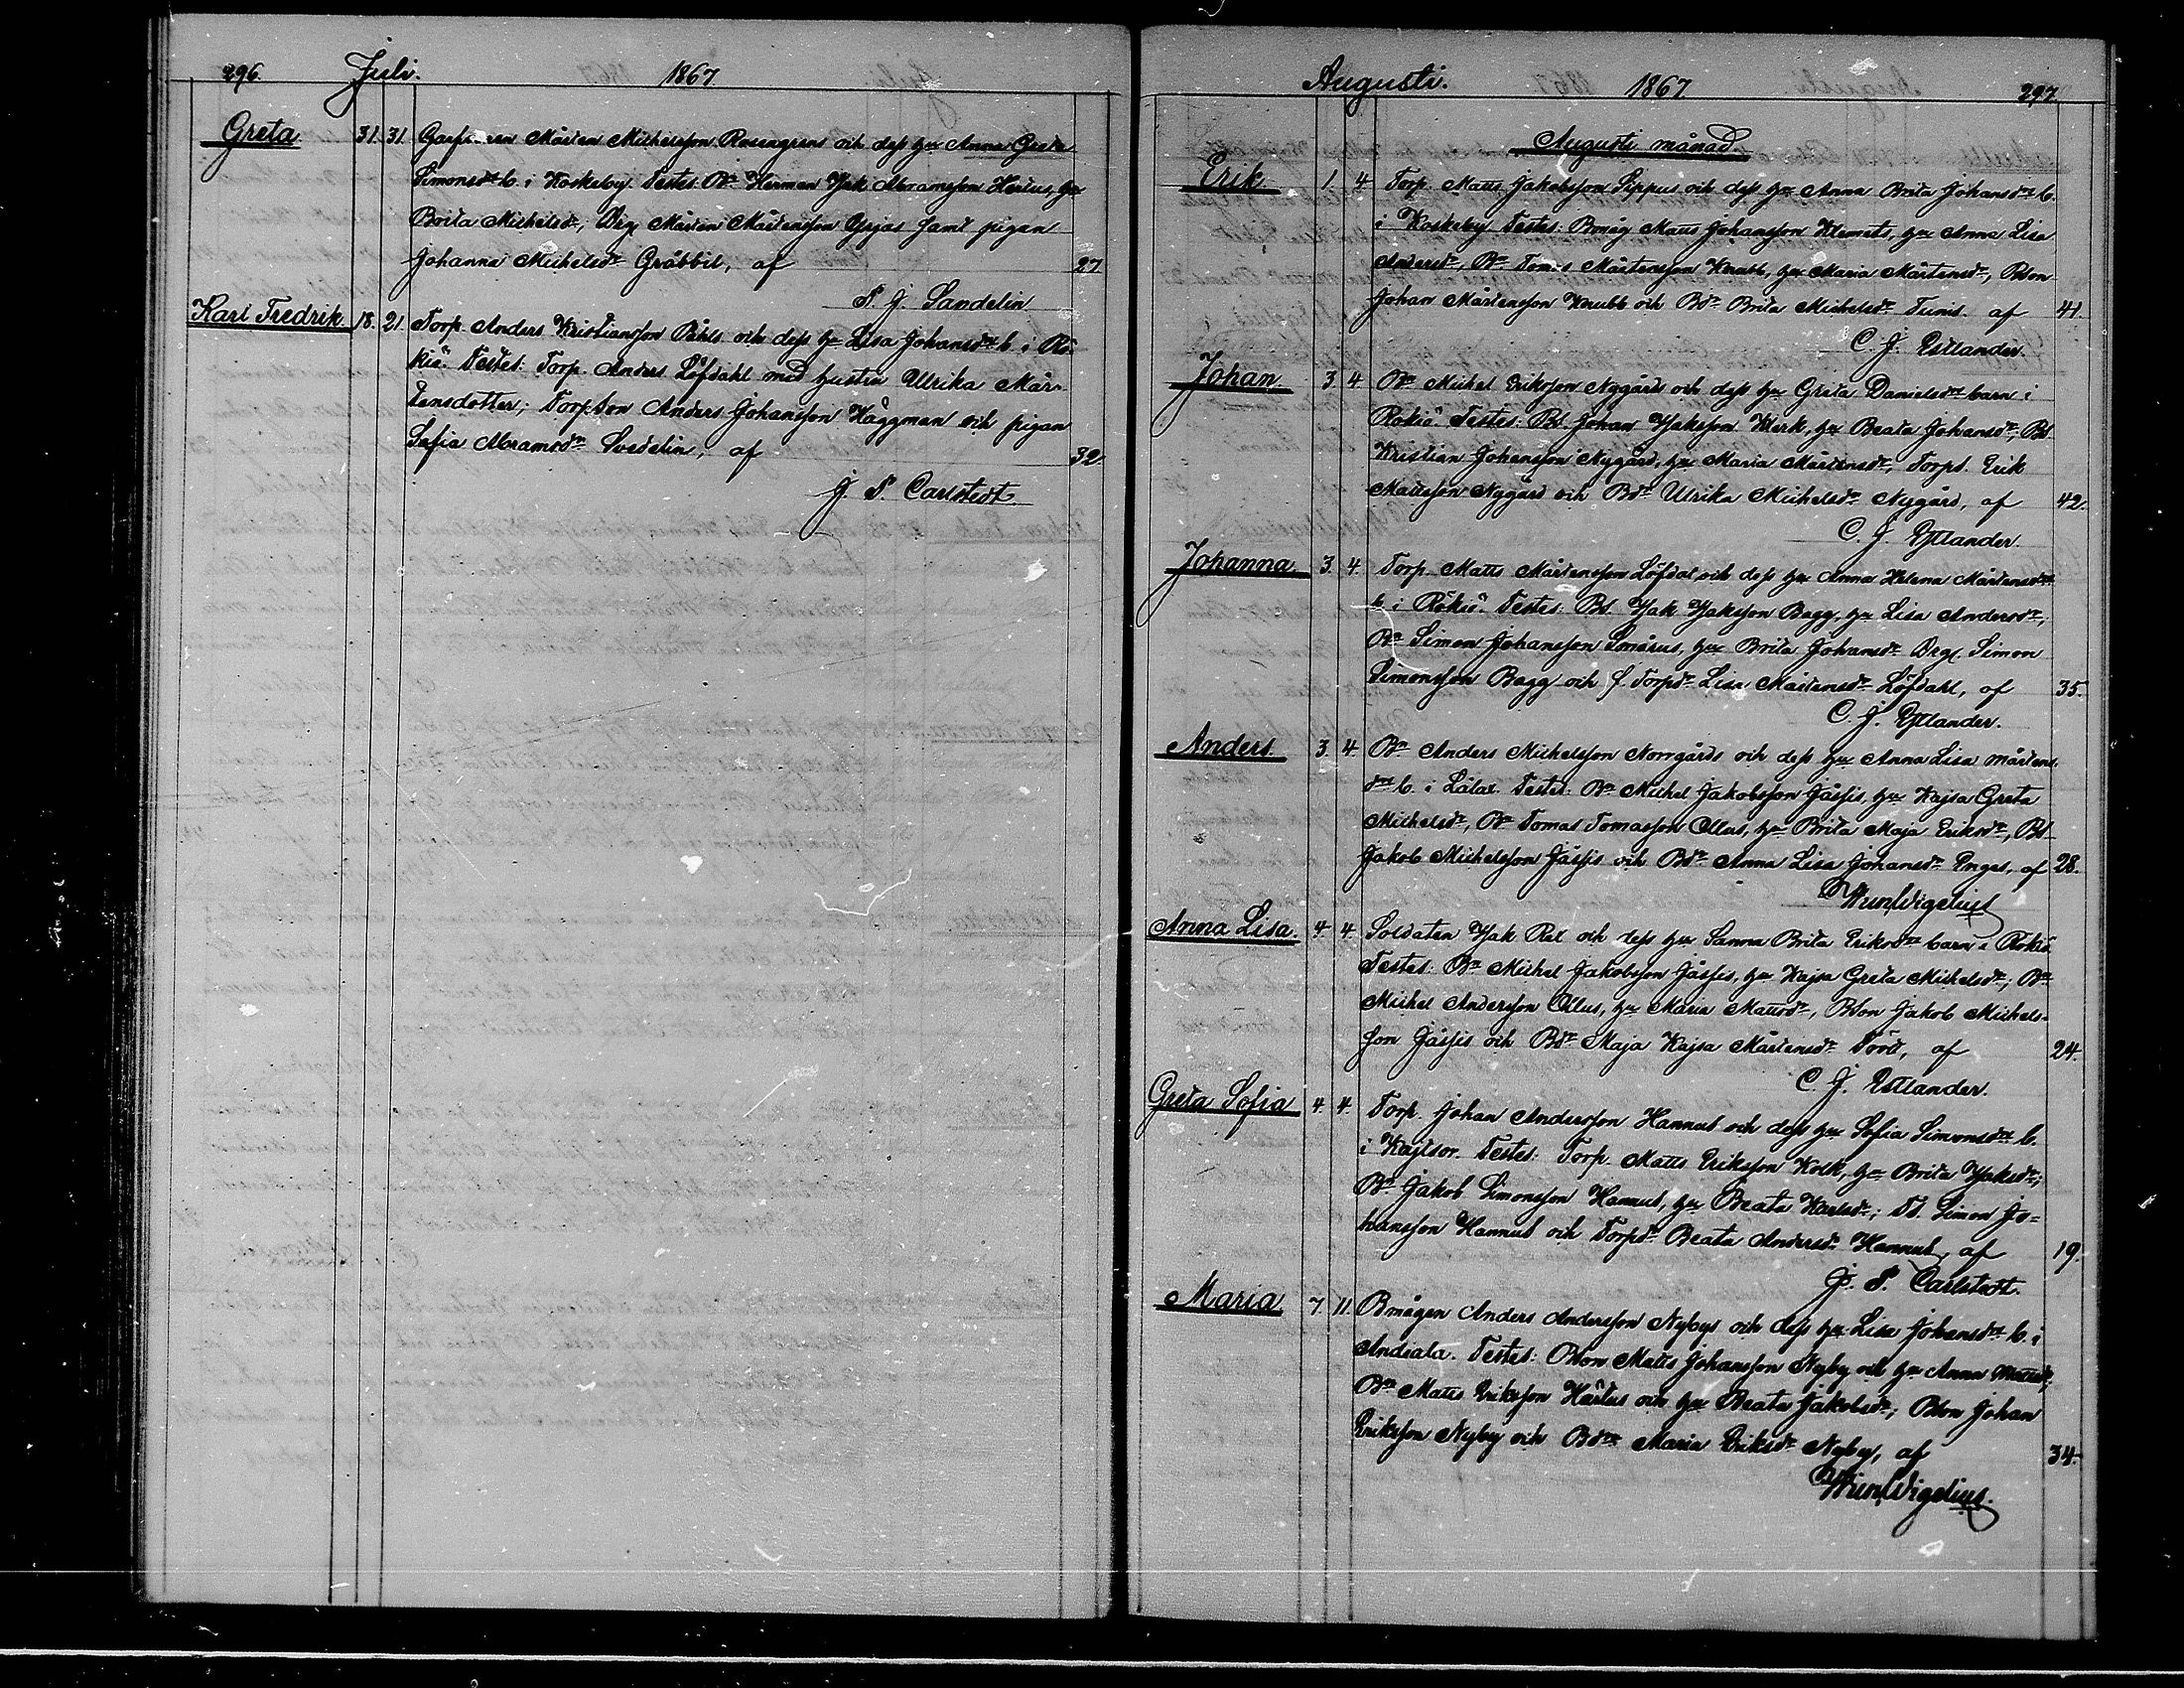 296. Juli. 1867.
Greta 31. 31. Mårten Michelsson Rosengrens och dess hu Anna Greta
Simonsdrs b. i Koskeby. Testes: Bn Herman Jak Abramsson Hertus, hu
Brita Michelsdr, Drg. Mårten Mårtensson samt pigan
Johanna Michelsdr Gräbbil, af 27
P. J. Sandelin
Karl Fredrik 18. 21. Torp. Anders Kristiansson Påhls och dess hu Lisa Johansdrs b. i Rö-
kiö. Testes: Torp. Anders Löfdahl med hustru Ullrika Mår-
tensdotter; Torp.son Anders Johansson Häggman och pigan
Sofia Abramsdr Svedelin, af 32.
J. P. Carlstedt.
Augusti. 1867 297.
Augusti månad
Erik 1. 4 Torp. Matts Jakobsson Sippus och dess hu Anna Brita Johansdrs b.
i Koskeby Testes: Bmåg Matts Johansson Klemets, hu Anna Lisa
Andersdr, Bn Tomas Mårtensson Knubb, hu Maria Mårtensdr, Bson
Johan Mårtensson Knubb och Bdr Brita Michelsdr Tunis. af 41.
C. J. Estlander.
Johan. 3. 4 Bn Michel Eriksson Nygårds och dess hu Greta Danielsdrs barn i
Rökiö. Testes: Bd. Johan Jaksson Klerk, hu Beata Johansdr, Bd.
Kristian Johansson Nygård, hu Maria Mårtensdr, Torps. Erik
Mattsson Nygård och Bdr Ulrika Michelsdr Nygård, af 42.
C. J. Estlander.
Johanna. 3. 4. Torp. Matts Mårtensson Löfdal och dess hu Anna Helena Mårtensdrs
b. i Rökiö. Testes. Bd. Jak Jaksson Bagg, hu Lisa Andersdr;
Bn Simon Johansson Smärus, hu Brita Johansdr Drg. Simon
Simonsson Bagg och f. Torpdr Lisa Mårtensdr Löfdahl, af 35.
C. J. Estlander.
Anders. 3. 4. Bn Anders Michelsson Norrgårds och dess hu Anna Lisa Mårtens-
drs b. i Lålax. Testes: Bn Michel Jakobsson Jåssis, hu Kajsa Greta
Michelsdr, Bn Tomas Tomasson Ollus, hu Brita Maja Eriksdr, Bd
Jakob Michelsson Jåssis och Bdr Anna Lisa Johansdr Enges, af 28.
Wigelius
Anna Lisa. 4. 4. Soldaten Jak Ral och dess hu Sanna Brita Eriksdrs barn i Rökiö.
Testes: Bn Michel Jakobsson Jåssis, hu Kajsa Greta Michelsdr; Bn
Michel Andersson Ollus, hu Maria Mattsdr, Bson Jakob Michels-
son Jåssis och Bdr Maja Kajsa Mårtensdr Törd, af 24.
C. J. Estlander.
Greta Sofia 4. 4. Torp. Johan Andersson Hannus och dess hu Sofia Simonsdrs b.
i Kaitsor. Testes: Torp. Matts Eriksson Kolk, hu Brita Jaksdr;
Bn Jakob Simonsson Hannus, hu Beata Karlsdr; Td. Simon Jo-
hansson Hannus och Torpdr Beata Andersdr Hannus, af 19.
J. P. Carlstedt.
Maria. 7. 11. Bmågen Anders Andersson Nybys och dess hu Lisa Johansdrs b. i
Andiala. Testes: Bson Matts Johansson Nyby och hu Anna Mattsdr;
Bn Matts Eriksson Härtus och hu Beata Jakobsdr; Bson Johan
Eriksson Nyby och Bdr Maria Eriksdr Nyby, af 34.
Wigelius.